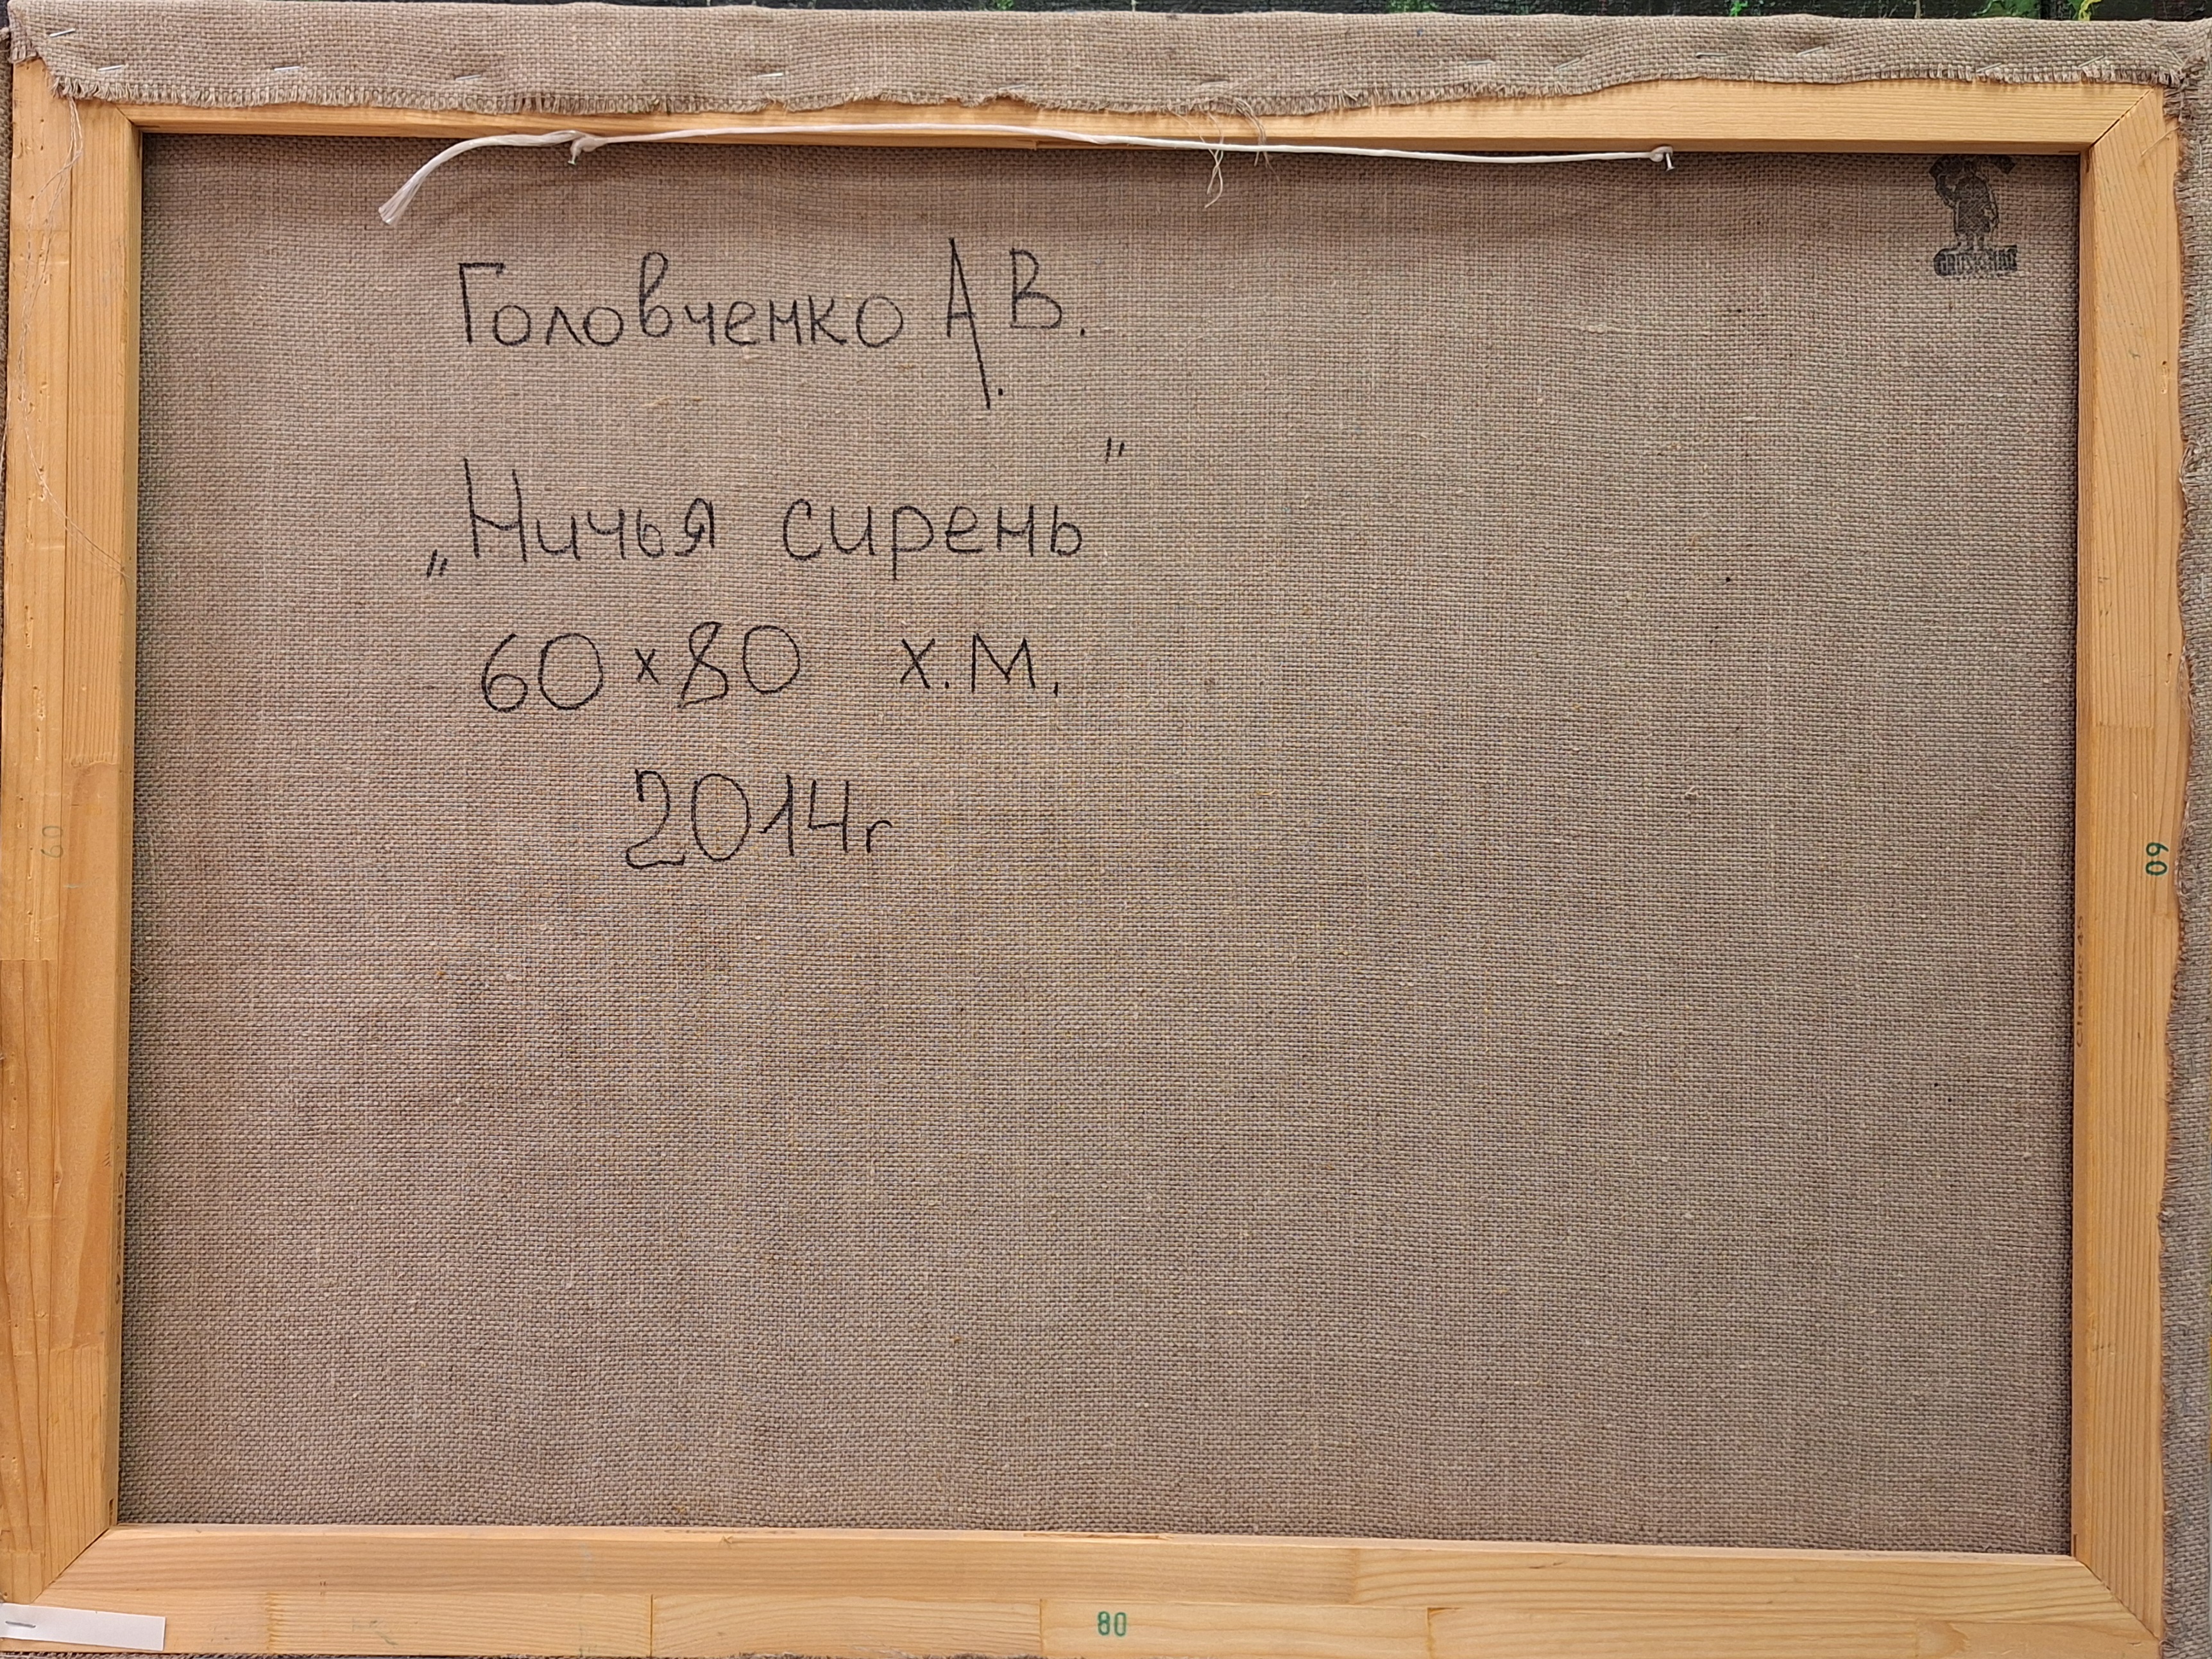 Головченко А.В.
„Ничья сирень"
60×80 х.м.
2014г
60
60
Classic 45
80